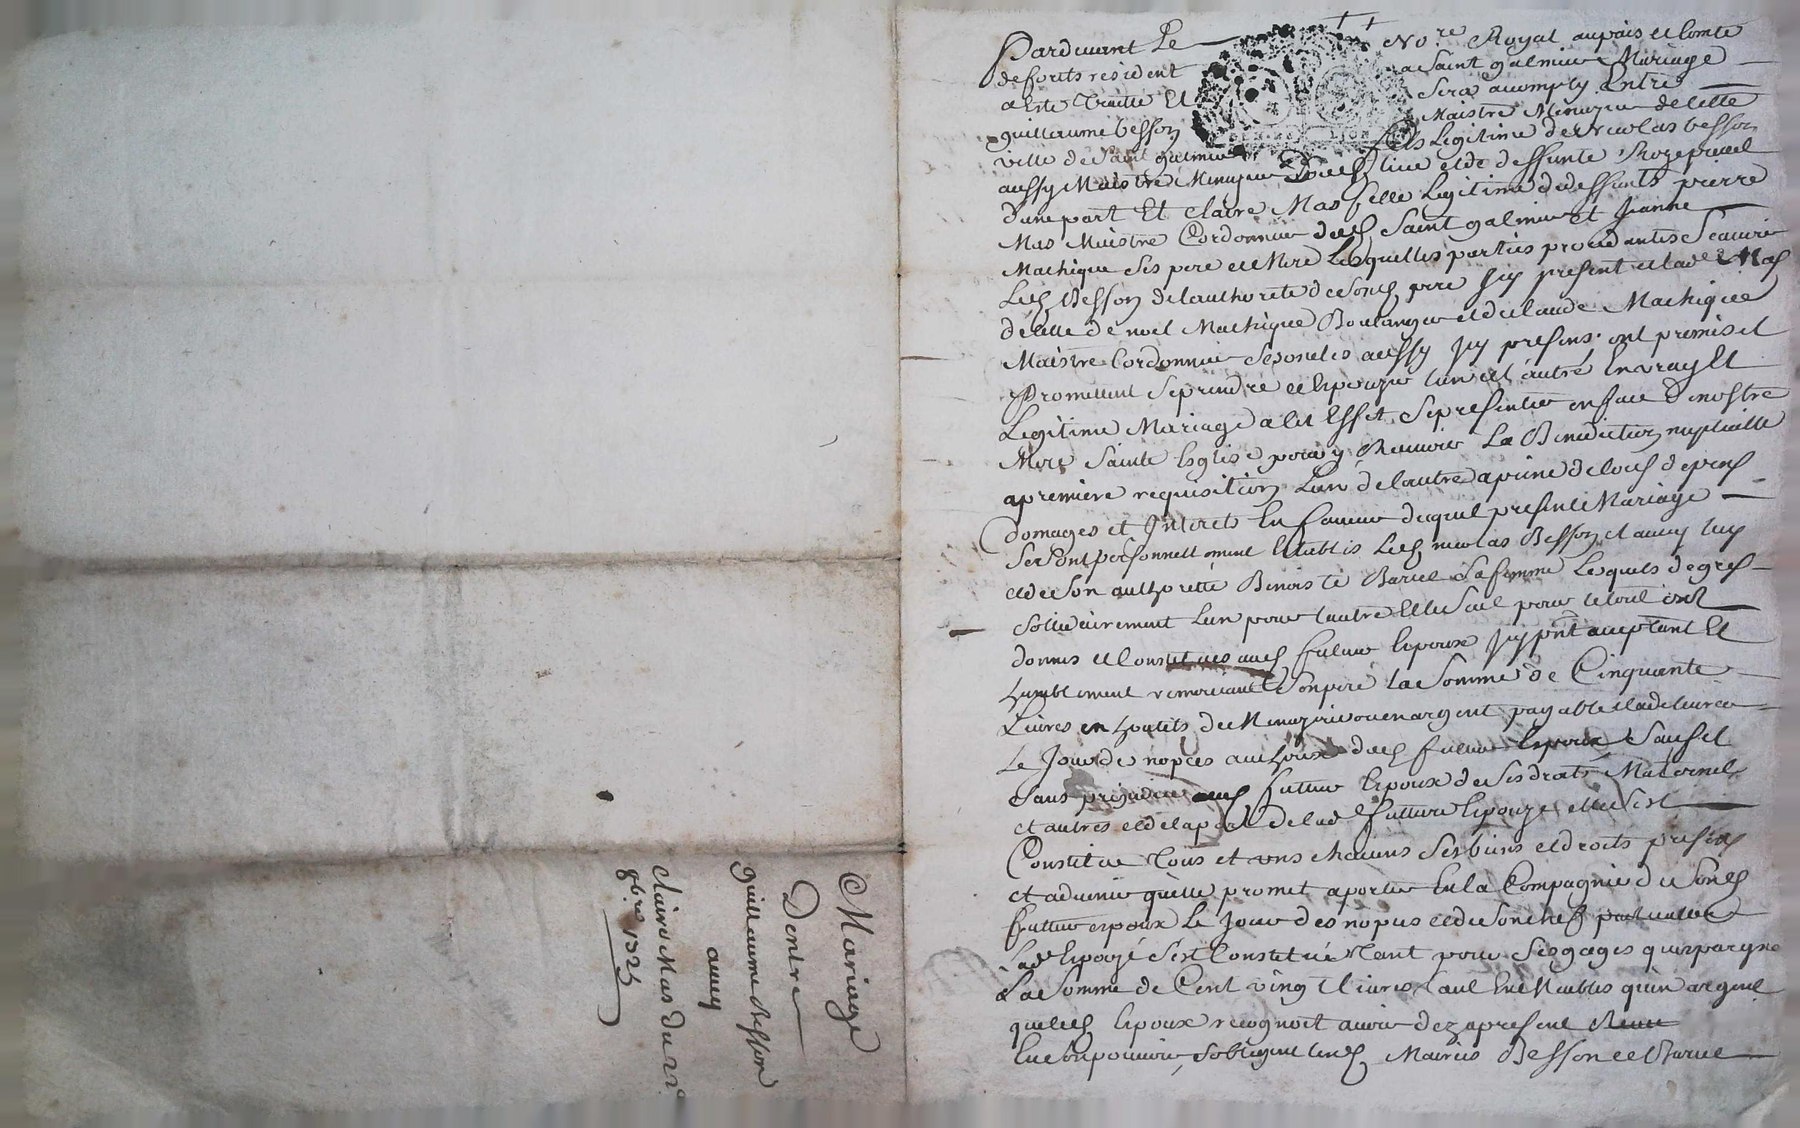 Pardevant Le No.re Royal au païs et Comte
de forets resident a Saint galmier Mariage
a Este Traitte Et Sera acomply Entre
guillaume besson Maistre Menuzier de cette
ville de Saint galmier fils Legitime de Nicolas besson
aussy Maistre Menuzier dud lieu et de deffunte
d'une part Et Claire Mas fille Legitime de deffunts pierre
Mas Maistre Cordonnier dud Saint galmier et Jeanne
Mathique ses pere et Mere Lesquelles parties procedantes Scavoir
Led Besson de l'authorité de Sond pere Jcy present et lad.e Mas
de celle de noel Mathique Boulanger et de claude Mathique
Maistre Cordonnier Ses oncles aussy Jcy presens ont promis et
Promettent se prendre et Epouzer l'un et l'autre En vray Et
Legitime Mariage a cet Effet se presenter en face de nostre
Mere Sainte Eglise pour y Recevoir La Benediction nuptialle
a premiere requisition L'un de l'autre a peine de tous depens
Domages et Jnterets En faveur duquel present Mariage
Se sont personnellement Etablis Led nicolas Besson et avecq luy
et de Son authorité Benoiste Barcel Sa femme Lesquels de gres
Sollidairement L'un pour l'autre Et le Seul pour le tout ont
donnés et Constitués aud futur Epoux Jcy pnt aceptant Et
humblement remerciant Son pere La Somme de Cinquante
Livres en houtils de Menuzerie ou en argent payable et a delivrer
Le Jour de nopces au choix dud futur Epoux Sauf et
Sans prejudice aud futtur Epoux de Ses droits Maternels
et autres et de la part de lad futture Epouze elle S'est
Constitué Tous et uns chacuns Ses biens et droits presens
et advenir qu'elle promet aporter En la Compagnie de Sond
futtur espoux Le Jour des nopces et de Son chef particulier
Lad Epouze S'est Constitué tant pour Ses gages qu'epargne
La Somme de Cent vingt livres tant En Meubles qu'en argent
que led Epoux recognoit avoir dez a present
En Son pouvoir, S'obligent lesd Mariés Besson et Barcel
Mariage
D'entre
guillaume Besson
avecq
Claire Mas du 22e
9bre 1725